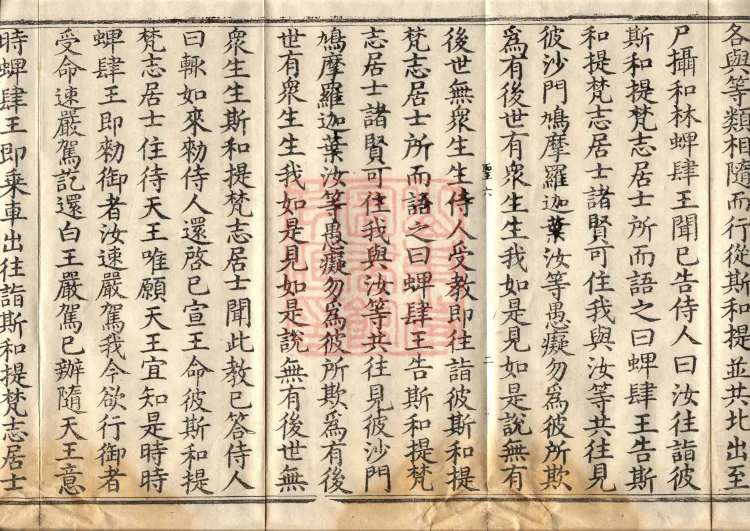 各與等類相隨而行從斯和提並共北出至
尸攝和林蜱肆王聞已告侍人曰汝往詣彼
斯和提梵志居士所而語之曰蜱肆王告斯
和提梵志居士諸賢可住我與汝等共往見
彼沙門鳩摩羅迦葉汝等愚癡勿為彼所欺
為有後世有衆生生我如是見如是說無有
聖六
二
後世無衆生生侍人受教即往詣彼斯和提
梵志居士所而語之曰蜱肆王告斯和提梵
志居士諸賢可住我與汝等共往見彼沙門
鳩摩羅迦葉汝等愚癡勿為彼所欺為有後
世有衆生生我如是見如是說無有後世無
衆生生斯和提梵志居士聞此教已答侍人
曰輙如來勑侍人還啓已宣王命彼斯和提
梵志居士住待天王唯願天王宜知是時時
蜱肆王即勑御者汝速嚴駕我今欲行御者
受命速嚴駕訖還白王嚴駕已辦隨天王意
時蜱肆王即乗車出往詣斯和提梵志居士